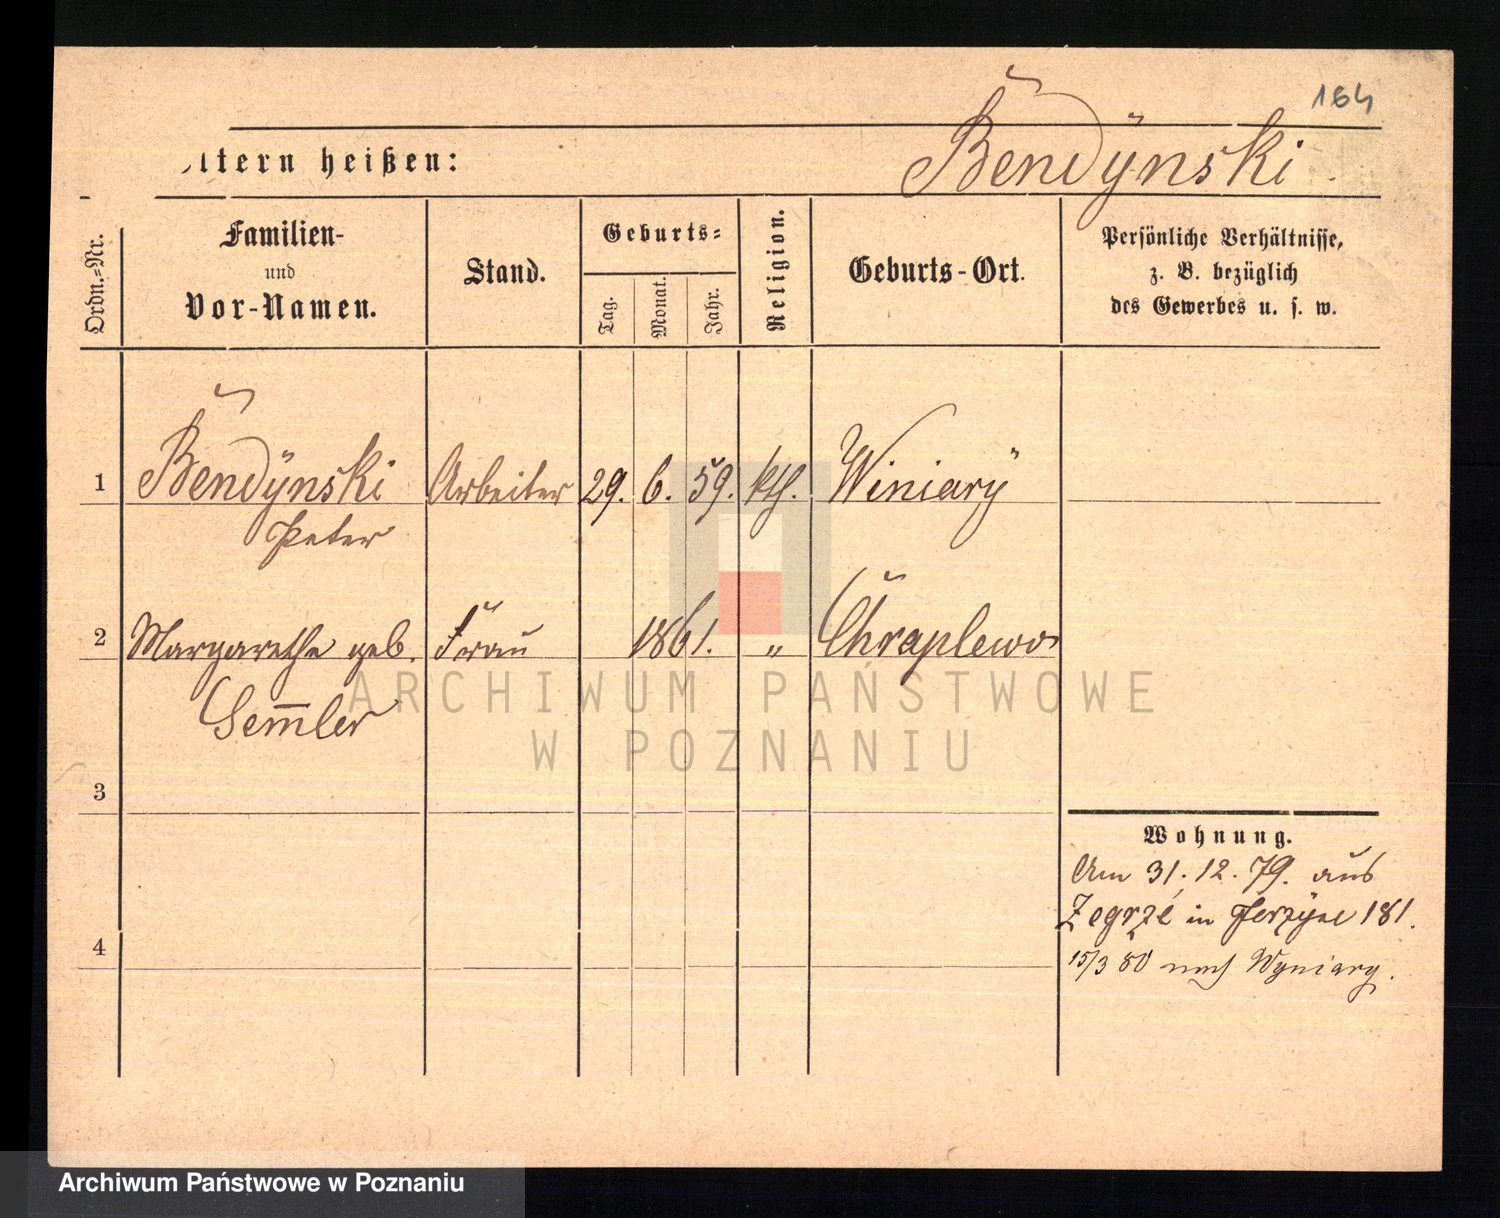 164
ltern heißen:
Bendÿnski
Ordn.-Nr.
Familien-
und
Vor-Namen.
Stand.
Geburts-
Tag.
Monat.
Jahr.
Religion.
Geburts-Ort.
Persönliche Verhältnisse,
z. B. bezüglich
des Gewerbes u. s. w.
1 Bendÿnski Arbeiter 29. 6. 59. kth. Winiarÿ
Peter
2 Margarethe geb. Frau 1861. " Chraplewo
Sem̅ler
ARCHIWUM PAŃSTWOWE
W POZNANIU
3
Wohnung.
Am 31.12.79. aus
Zegrze in Jerzÿce 181.
4
15/3 80 nach Wyniary.
Archiwum Państwowe w Poznaniu